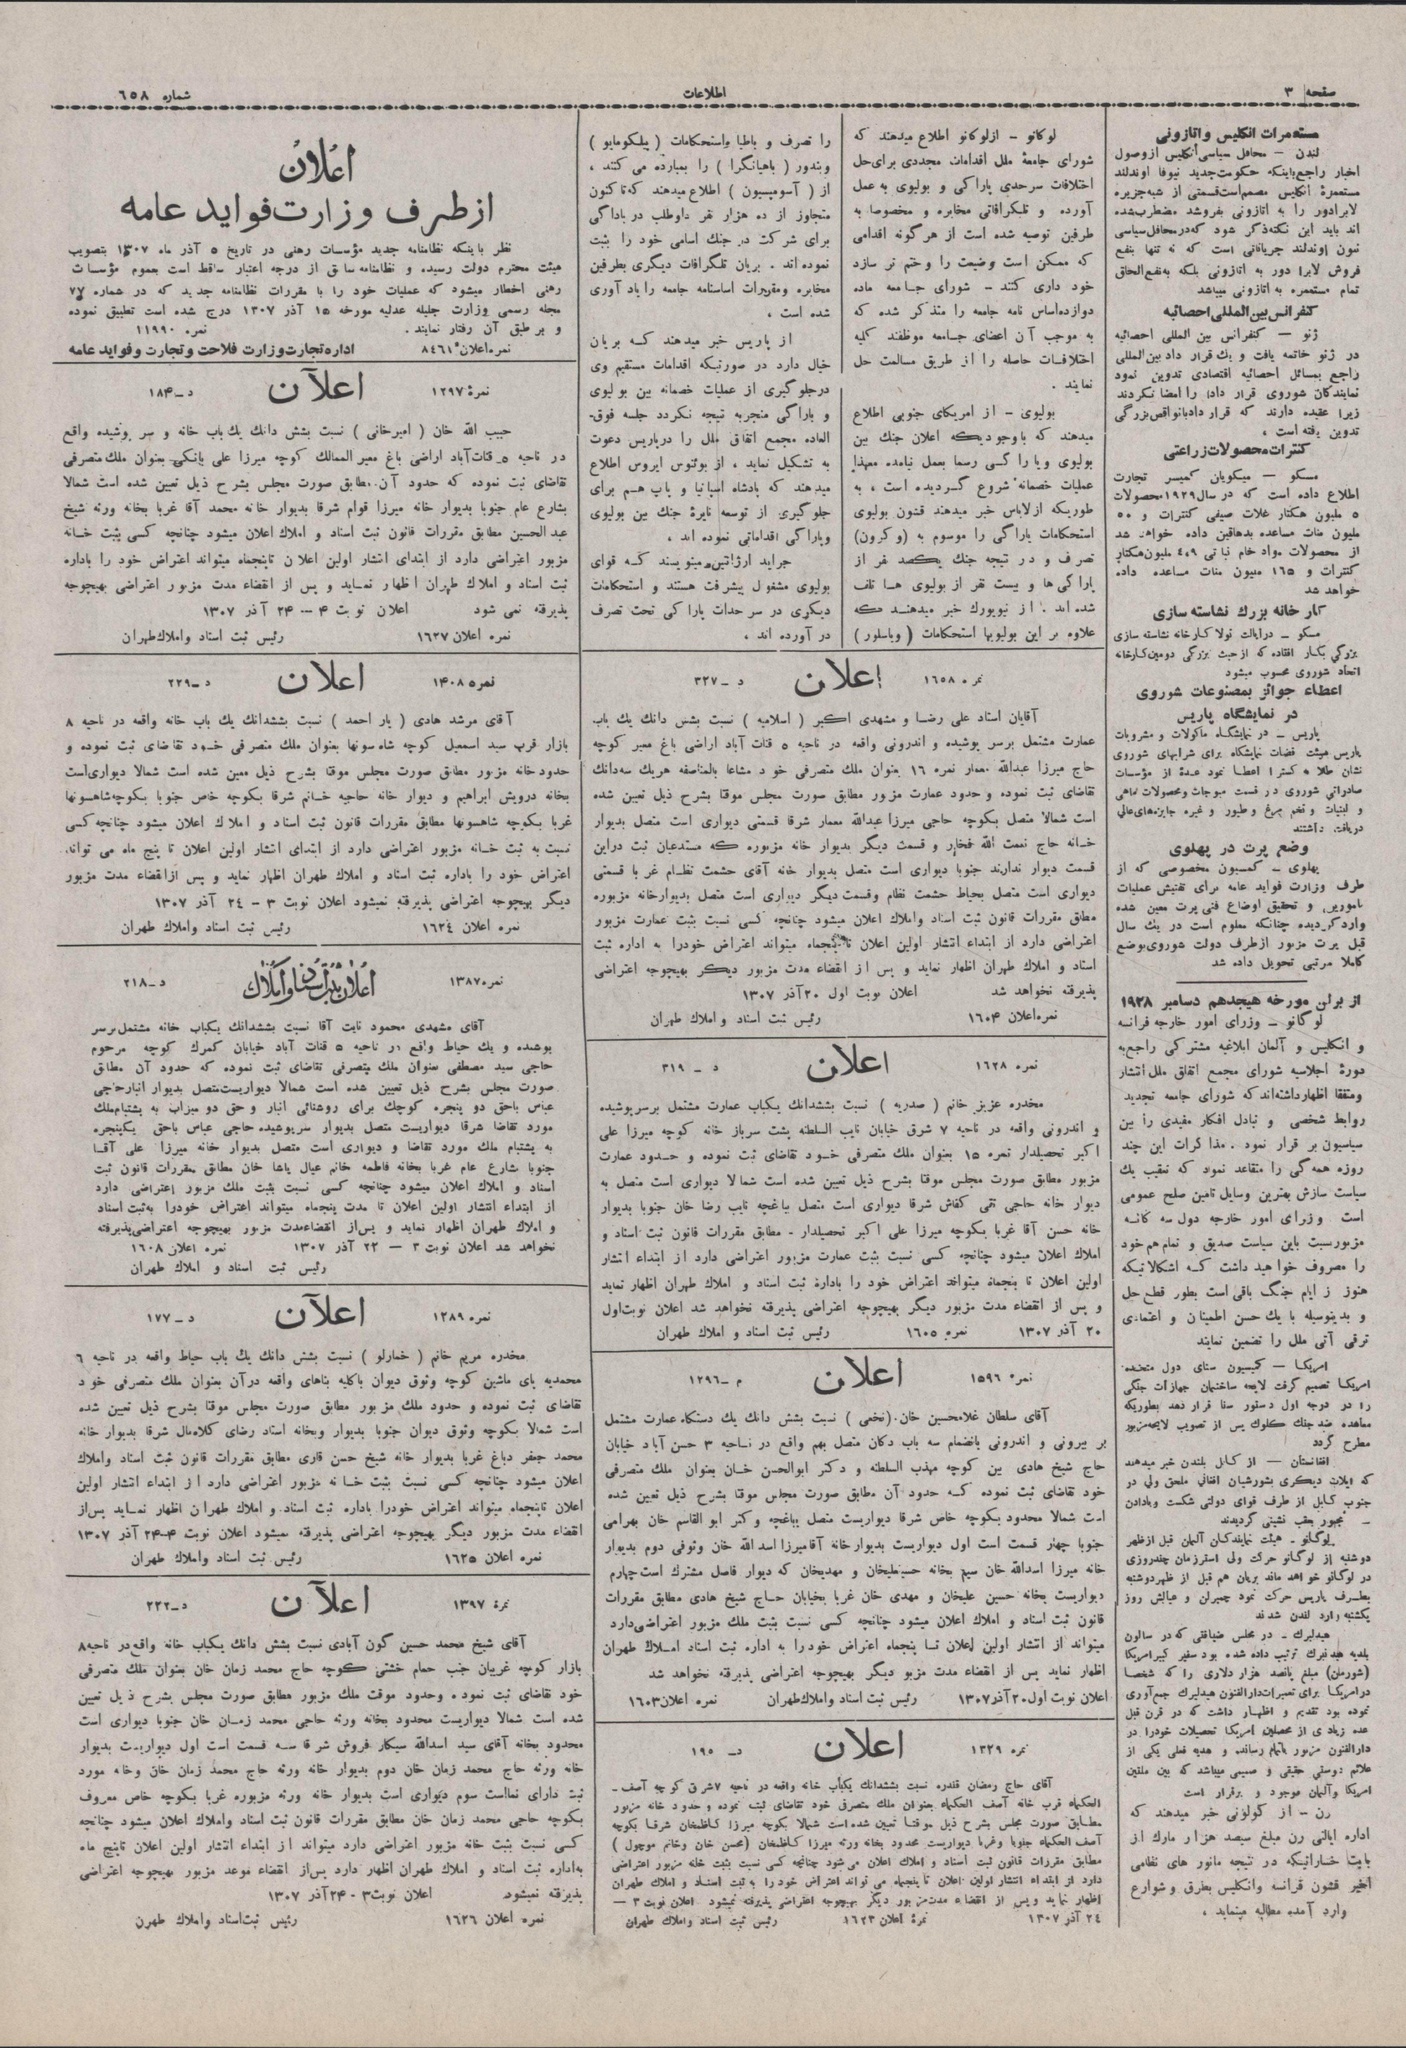 صفحه ۳
اطلاعات
شماره ٦٥٨
مستعمرات انگلیس و اتازونی
لندن – محافل سیاسی انگلیس از وصول
اخبار راجع باینکه حکومت جدید نیوفا اوندلند
مستعمرهٔ انگلیس مصمم است قسمتی از شبه جزیره
لابرادور را به اتازونی بفروشد مضطرب شده
اند باید این نکته ذکر شود که در محافل سیاسی
نیون اوندلند جریاناتی است که نه تنها بنفع
فروش لابرا دور به اتازونی بلکه به نفع الحاق
تمام مستعمره به اتازونی میباشد
کنفرانس بین المللی احصائیه
ژنو – کنفرانس بین المللی احصائیه
در ژنو خاتمه یافت و یك قرار داد بین المللی
راجع بمسائل احصائیه اقتصادی تدوین نمود
نمایندگان شوروی قرار داد را امضا نکردند
زیرا عقیده دارند که قرار داد بانواقص بزرگی
تدوین یافته است ،
کنترات محصولات زراعتی
مسکو – میکویان کمیسر تجارت
اطلاع داده است که در سال ۱۹۲۹ محصولات
۵ ملیون هکتار غلات صیفی کنترات و ۵۰
ملیون منات مساعده بدهاقین داده خواهد شد
از محصولات مواد خام نباتی ۴،۹ ملیون هکتار
کنترات و ۱٦۵ ملیون منات مساعده داده
خواهد شد
کار خانه بزرك نشاسته سازی
مسکو – در ایالت تولا کارخانه نشاسته سازی
بزرگی بکار افتاده که از حیث بزرگی دومین کارخانه
اتحاد شوروی محسوب میشود
اعطاء جوائز بمصنوعات شوروی
در نمایشگاه پاریس
پاریس – در نمایشگاه ماکولات و مشروبات
پاریس هیئت قضات نمایشگاه برای شرابهای شوروی
نشان طلا
صادراتی شوروی در قسمت میوجات و محصولات ماهی
و لبنیات و تخم مرغ و طیور و غیره جایزه های عالی
دریافت داشتند
وضع پرت در پهلوی
پهلوی – کمسیون مخصوصی که از
طرف وزارت فواید عامه برای تفتیش عملیات
مامورین و تحقیق اوضاع فنی پرت معین شده
وارد گردیده چنانکه معلوم است در یك سال
قبل پرت مزبور از طرف دولت شوروی بوضع
کاملا مرتبی تحویل داده شد
از برلن مورخه هیجدهم دسامبر ۱۹۲۸
لوگانو – وزرای امور خارجه فرانسه
و انگلیس و آلمان ابلاغیه مشترکی راجع به
دورهٔ اجلاسیه شورای مجمع اتفاق ملل انتشار
ومتفقا اظهار داشته اند که شورای جامعه تجدید
روابط شخصی و تبادل افکار مفیدی را بین
سیاسیون بر قرار نمود . مذاکرات این چند
روزه همه گی را متقاعد نمود که تعقیب یك
سیاست سازش بهترین وسایل تامین صلح عمومی
است وزرای امور خارجه دول سه گانه
مزبور نسبت باین سیاست صدیق و تمام هم خود
را مصروف خواهید داشت که اشکالاتیکه
هنوز ز ایام جنگ باقی است بطور قطع حل
و بدینوسیله با یك حسن اطمینان و اعتمادی
ترقی آتی ملل را تضمین نمایند
امریکا – کمیسیون سنای دول متحده
امریکا تصمیم گرفت لایحه ساختمان جهازات جنگی
را در درجه اول دستور سنا قرار دهد بطوریکه
معاهده ضد جنك کلوك پس از تصویب لایحه مزبور
مطرح گردد
افغانستان – از کابل بلندن خبر میدهند
که ایلات دیگری بشورشیان افغانی ملحق ولی در
جنوب کابل از طرف قوای دولتی شکست و بادادن
– مجبور بعقب نشینی گردیدند
لوگانو – هیئت نمایندگان آلمان قبل از ظهر
دوشنبه از لوگانو حرکت ولی استرزمان چند روزی
در لوگانو خواهد ماند بریان هم قبل از ظهر دوشنبه
بطرف پاریس حرکت نمود چمبرلن و عیالش روز
یکشنبه وارد لندن شدند
هیدلبرك – در مجلس ضیافتی که در سالون
بلدیه هیدلبرك ترتیب داده شده بود سفیر کبیر امریکا
(شورمان) مبلغ پانصد هزار دلاری را که شخصا
در امریکا برای تعمیرات دارالفنون هیدلبرك جمع آوری
نموده بود تقدیم و اظهار داشت که در قرن قبل
عده زیادی از محصلین امریکا تحصیلات خود را در
دارالفنون مزبور باتمام رساند، و هدیه فعلی یکی از
علائم دوستی حقیقی و صمیمی میباشد که بین ملتین
امریکا وآلمان موجود و برقرار است
رن – از کولونی خبر میدهند که
اداره ایالتی رن مبلغ سیصد هزار مارك از
بابت خساراتیکه در نتیجه مانور های نظامی
اخیر قشون فرانسه وانگلیس بطرق و شوارع
وارد آمده مطالبه مینماید ،
لوکانو – از لوکانو اطلاع میدهند که
شورای جامعهٔ ملل اقدامات مجددی برای حل
اختلافات سرحدی پاراگی و بولیوی به عمل
آورده و تلگرافاتی مخابره و مخصوصا به
طرفین توصیه شده است از هرگونه اقدامی
که ممکن است وضعیت را وخیم تر سازد
خود داری کنند – شورای جامعه ماده
دوازده اساس نامه جامعه را متذکر شده که
به موجب آن اعضای جامعه موظفند کلیه
اختلافات حاصله را از طریق مسالمت حل
نمایند .
بولیوی – از امریکای جنوبی اطلاع
میدهند که باوجودیکه اعلان جنك بین
بولیوی و پاراگسی رسما بعمل نیامده معهذا
عملیات خصمانه شروع گردیده است ، به
طوریکه از لاپاس خبر میدهند قشون بولیوی
استحکامات پاراگی را موسوم به (وکرون)
تصرف و در نتیجه جنك یکصد نفر از
پاراگی ها و بیست نفر از بولیوی ها تلف
شده اند . از نیویورك خبر میدهند که
علاوه بر این بولیویها استحکامات (وباسلور)
را تصرف و باطیا واستحکامات (پیلکومایو)
وبندور (باهیانگرا) را بمبارده می کنند ،
از (آسومپسیون) اطلاع میدهند که تا کنون
متجاوز از ده هزار نفر داوطلب در پاداگی
برای شرکت در جنك اسامی خود را ثبت
نموده اند . بریان تلگرافات دیگری بطرفین
مخابره ومقررات اساسنامه جامعه را یاد آوری
شده است ،
از پاریس خبر میدهند که بریان
خیال دارد در صورتیکه اقدامات مستقیم وی
در جلوگیری از عملیات خصمانه بین بولیوی
و پاراگی منجر به نتیجه نگردد جلسه فوق-
العاده مجمع اتفاق ملل را در پاریس دعوت
به تشکیل نماید ، از بوئنوس ایروس اطلاع
میدهند که پادشاه اسپانیا و پاپ هم برای
جلوگیری از توسعه نایرهٔ جنك بین بولیوی
وپاراگی اقداماتی نموده اند ،
جراید ارژانتین مینویسند که قوای
بولیوی مشغول پیشرفت هستند و استحکامات
دیگری در سر حدات پاراگی تحت تصرف
در آورده اند ،
نمره ۱٦۵۸ اعلان د – ۳۲۷
آقایان استاد علی رضا و مشهدی اکبر (اسلامیه) نسبت بشش دانك یك باب
عمارت مشتمل برسر پوشیده و اندرونی واقعه در ناحیه ۵ قنات آباد اراضی باغ معیر کوچه
حاج میرزا عبدالله معمار نمره ۱٦ بعنوان ملك متصرفی خود مشاعا بالمناصفه هریك سه دانك
تقاضای ثبت نموده و حدود عمارت مزبور مطابق صورت مجلس موقتا بشرح ذیل تعیین شده
است شمالا متصل بکوچه حاجی میرزا عبدالله معمار شرقا قسمتی دیواری است متصل بدیوار
خانه حاج نعمت الله فخار و قسمت دیگر بدیوار خانه مزبوره که مستدعیان ثبت دراین
قسمت دیوار ندارند جنوبا دیواری است متصل بدیوار خانه آقای حشمت نظام غربا قسمتی
دیواری است متصل بحیاط حشمت نظام وقسمت دیگر دیواری است متصل بدیوار خانه مزبوره
مطابق مقررات قانون ثبت اسناد واملاك اعلان میشود چنانچه کسی نسبت بثبت عمارت مزبور
اعتراضی دارد از ابتداء انتشار اولین اعلان تا پنجماه میتواند اعتراض خودرا به اداره ثبت
اسناد و املاك طهران اظهار نماید و پس از انقضاء مدت مزبور دیگر بهیچوجه اعتراضی
پذیرفته نخواهد شد اعلان نوبت اول ۲۰ آذر ۱۳۰۷
نمره اعلان ۱٦۰۴ رئیس ثبت اسناد و املاك طهران
نمره ۱٦۲۸ اعلان د – ۳۱۹
مخدره عزیز خانم (صدریه) نسبت بششدانك یکباب عمارت مشتمل برسرپوشیده
و اندرونی واقعه در ناحیه ۷ شرق خیابان نایب السلطنه پشت سرباز خانه کوچه میرزا علی
اکبر تحصیلدار نمره ۱۵ بعنوان ملك متصرفی خود تقاضای ثبت نموده و حدود عمارت
مزبور مطابق صورت مجلس موقتا بشرح ذیل تعیین شده است شمالا دیواری است متصل به
دیوار خانه حاجی تقی کفاش شرقا دیواری است متصل بباغچه نایب رضا خان جنوبا بدیوار
خانه حسن آقا غربا بکوچه میرزا علی اکبر تحصیلدار – مطابق مقررات قانون ثبت اسناد و
املاك اعلان میشود چنانچه کسی نسبت بثبت عمارت مزبور اعتراضی دارد از ابتداء انتشار
اولین اعلان تا پنجماه میتواند اعتراض خود را باداره ثبت اسناد و املاك طهران اظهار نماید
و پس از انقضاء مدت مزبور دیگر بهیچوجه اعتراضی پذیرفته نخواهد شد اعلان نوبت اول
۲۰ آذر ۱۳۰۷ نمره ۱٦۰۵ رئیس ثبت اسناد و املاك طهران
نمره ۱۵۹٦ اعلان م – ۱۲۹٦
آقای سلطان غلامحسین خان (نخعی) نسبت بشش دانك یك دستگاه عمارت مشتمل
بر بیرونی و اندرونی بانضمام سه باب دکان متصل بهم واقع در ناحیه ۳ حسن آباد خیابان
حاج شیخ هادی بین کوچه مهذب السلطنه و دکتر ابوالحسن خان بعنوان ملك متصرفی
خود تقاضای ثبت نموده که حدود آن مطابق صورت مجلس موقتا بشرح ذیل تعیین شده
است شمالا محدود بکوچه خاص شرقا دیواریست متصل بباغچه وکتر ابو القاسم خان بهرامی
جنوبا چهار قسمت است اول دیواریست بدیوار خانه آقامیرزا اسد الله خان وثوقی دوم بدیوار
خانه میرزا اسدالله خان سیم بخانه حسینعلیخان و مهدیخان که دیوار فاصل مشترك است چهارم
دیواریست بخانه حسین علیخان و مهدی خان غربا بخیابان حاج شیخ هادی مطابق مقررات
قانون ثبت اسناد و املاك اعلان میشود چنانچه کسی نسبت بثبت ملك مزبور اعتراضی دارد
میتواند از انتشار اولین اعلان تا پنجماه اعتراض خود را به اداره ثبت اسناد املاك طهران
اظهار نماید پس از انقضاء مدت مزبو دیگر بهیچوجه اعتراضی پذیرفته نخواهد شد
اعلان نوبت اول ۲۰ آذر ۱۳۰۷ رئیس ثبت اسناد واملاك طهران نمره اعلان ۱٦۰۳
نمره ۱۳۲۹ اعلان د – ۱۹۵
آقای حاج رمضان قلندره نسبت بششدانك یکباب خانه واقعه در ناحیه ۷ شرق کوچه آصف-
الحکماء قرب خانه آصف الحکماء بعنوان ملك متصرفی خود تقاضای ثبت نموده و حدود خانه مزبور
مطابق صورت مجلس بشرح ذیل موقتا تعیین شده است شمالا بکوچه میرزا کاظمخان شرقا بکوچه
آصف الحکماء جنوبا وغربا دیواریست محدود بخانه ورثه میرزا کاظمخان (محسن خان وخانم موچول)
مطابق مقررات قانون ثبت اسناد و املاك اعلان می شود چنانچه کسی نسبت بثبت خانه مزبور اعتراضی
دارد از ابتداء انتشار اولین اعلان تا پنجماه می تواند اعتراض خود را به ثبت اسناد و املاك طهران
اظهار نماید وپس از انقضاء مدت مزبور دیگر بهیچوجه اعتراضی پذیرفته نمیشود اعلان نوبت ۳ –
۲۴ آذر ۱۳۰۷ نمرهٔ اعلان ۱٦۲۳ رئیس ثبت اسناد واملاك طهران
اعلان
از طرف وزارت فواید عامه
نظر باینکه نظامنامه جدید مؤسسات رهنی در تاریخ ۵ آذر ماه ۱۳۰۷ بتصویب
هیئت محترم دولت رسیده و نظامنامه سابق از درجه اعتبار ساقط است بعموم مؤسسات
رهنی اخطار میشود که عملیات خود را با مقررات نظامنامه جدید که در شماره ۷۷
مجله رسمی وزارت جلیله عدلیه مورخه ۱۵ آذر ۱۳۰۷ درج شده است تطبیق نموده
و بر طبق آن رفتار نمایند . نمره ۱۱۹۹۰
نمره اعلان ۸۴٦۱ اداره تجارت وزارت فلاحت و تجارت و فواید عامه
نمرهٔ ۱۲۹۷ اعلان د – ۱۸۴
حبیب الله خان (امیرخانی) نسبت بشش دانك یك باب خانه و سر پوشیده واقع
در ناحیه ۵ قنات آباد اراضی باغ معیر الممالك کوچه میرزا علی بانکی بعنوان ملك متصرفی
تقاضای ثبت نموده که حدود آن مطابق صورت مجلس بشرح ذیل تعیین شده است شمالا
بشارع عام جنوبا بدیوار خانه میرزا قوام شرقا بدیوار خانه محمد آقا غربا بخانه ورثه شیخ
عبدالحسین مطابق مقررات قانون ثبت اسناد و املاك اعلان میشود چنانچه کسی بثبت خانه
مزبور اعتراضی دارد از ابتدای انتشار اولین اعلان تاپنجماه میتواند اعتراض خود را باداره
ثبت اسناد و املاك طهران اظهار نماید و پس از انقضاء مدت مزبور اعتراضی بهیچوجه
پذیرفته نمی شود اعلان نوبت ۴ – ۲۴ آذر ۱۳۰۷
نمره اعلان ۱٦۲۷ رئیس ثبت اسناد واملاك طهران
نمره ۱۴۰۸ اعلان د – ۲۲۹
آقای مرشد هادی (یار احمد) نسبت بششدانك یك باب خانه واقعه در ناحیه ۸
بازار قرب سید اسمعیل کوچه شاهسونها بعنوان ملك متصرفی خود تقاضای ثبت نموده و
حدود خانه مزبور مطابق صورت مجلس موقتا بشرح ذیل معین شده است شمالا دیواری است
بخانه درویش ابراهیم و دیوار خانه حاجیه خانم شرقا بکوچه خاص جنوبا بکوچه شاهسونها
غربا بکوچه شاهسونها مطابق مقررات قانون ثبت اسناد و املاك اعلان میشود چنانچه کسی
نسبت به ثبت خانه مزبور اعتراضی دارد از ابتدای انتشار اولین اعلان تا پنج ماه می تواند
اعتراض خود را باداره ثبت اسناد و املاك طهران اظهار نماید و پس از انقضاء مدت مزبور
دیگر بهیچوجه اعتراضی پذیرفته نمیشود اعلان نوبت ۳ – ۲۴ آذر ۱۳۰۷
نمره اعلان ۱٦۲۴ رئیس ثبت اسناد و املاك طهران
نمره ۱۳۸۷ اعلان ثبت اسناد و املاك د – ۲۱۸
آقای مشهدی محمود نایت آقا نسبت بششدانك یکباب خانه مشتمل برسر
پوشیده و یك حیاط واقع در ناحیه ۵ قنات آباد خیابان گمرك کوچه مرحوم
حاجی سید مصطفی بعنوان ملك متصرفی تقاضای ثبت نموده که حدود آن مطابق
صورت مجلس بشرح ذیل تعیین شده است شمالا دیواریست متصل بدیوار انبار حاجی
عباس باحق دو پنجره کوچك برای روشنائی انبار و حق دو میزاب به پشتبام ملك
مورد تقاضا شرقا دیواریست متصل بدیوار سرپوشیده حاجی عباس باحق یکپنجره
به پشتبام ملك مورد تقاضا و دیواری است متصل بدیوار خانه میرزا علی آقا
جنوبا بشارع عام غربا بخانه فاطمه خانم عیال پاشا خان مطابق مقررات قانون ثبت
اسناد و املاك اعلان میشود چنانچه کسی نسبت بثبت ملك مزبور اعتراضی دارد
از ابتداء انتشار اولین اعلان تا مدت پنجماه میتواند اعتراض خودرا به ثبت اسناد
و املاك طهران اظهار نماید و پس از انقضاء مدت مزبور بهیچوجه اعتراضی پذیرفته
نخواهد شد اعلان نوبت ۳ – ۲۲ آذر ۱۳۰۷ نمره اعلان ۱٦۰۸
رئیس ثبت اسناد و املاك طهران
نمره ۱۲۸۹ اعلان د – ۱۷۷
مخدره مریم خانم (خمارلو) نسبت بشش دانك یك باب حیاط واقعه در ناحیه ٦
محمدیه پای ماشین کوچه وثوق دیوان باکلیه بناهای واقعه درآن بعنوان ملك متصرفی خود
تقاضای ثبت نموده و حدود ملك مزبور مطابق صورت مجلس موقتا بشرح ذیل تعیین شده
است شمالا بکوچه وثوق دیوان جنوبا بدیوار وبخانه استاد رضای کلاه مال شرقا بدیوار خانه
محمد جعفر دباغ غربا بدیوار خانه شیخ حسن قاری مطابق مقررات قانون ثبت اسناد واملاك
اعلان میشود چنانچه کسی نسبت بثبت خانه مزبور اعتراضی دارد از ابتداء انتشار اولین
اعلان تاپنجماه میتواند اعتراض خودرا باداره ثبت اسناد و املاك طهران اظهار نماید پس از
انقضاء مدت مزبور دیگر بهیچوجه اعتراضی پذیرفته نمیشود اعلان نوبت ۴–۲۴ آذر ۱۳۰۷
نمره اعلان ۱٦۲۵ رئیس ثبت اسناد واملاك طهران
نمرهٔ ۱۳۹۷ اعلان د – ۲۲۲
آقای شیخ محمد حسین گون آبادی نسبت بشش دانك یکباب خانه واقع در ناحیه ۸
بازار کوچه غریبان جنب حمام خشتی کوچه حاج محمد زمان خان بعنوان ملك متصرفی
خود تقاضای ثبت نموده وحدود موقت ملك مزبور مطابق صورت مجلس بشرح ذیل تعیین
شده است شمالا دیواریست محدود بخانه ورثه حاجی محمد زمان خان جنوبا دیواری است
محدود بخانه آقای سید اسدالله سیگار فروش شرقا سه قسمت است اول دیواریست بدیوار
خانه ورثه حاج محمد زمان خان دوم بدیوار خانه ورثه حاج محمد زمان خان وخانه مورد
ثبت دارای نمااست سوم دیواری است بدیوار خانه ورثه مزبوره غربا بکوچه خاص معروف
بکوچه حاجی محمد زمان خان مطابق مقررات قانون ثبت اسناد واملاك اعلان میشود چنانچه
کسی نسبت بثبت خانه مزبور اعتراضی دارد میتواند از ابتداء انتشار اولین اعلان تاپنج ماه
به اداره ثبت اسناد و املاك طهران اظهار دارد پس از انقضاء موعد مزبور بهیچوجه اعتراضی
پذیرفته نمیشود اعلان نوبت ۳ – ۲۴ آذر ۱۳۰۷
نمره اعلان ۱٦۲٦ رئیس ثبت اسناد واملاك طهرن